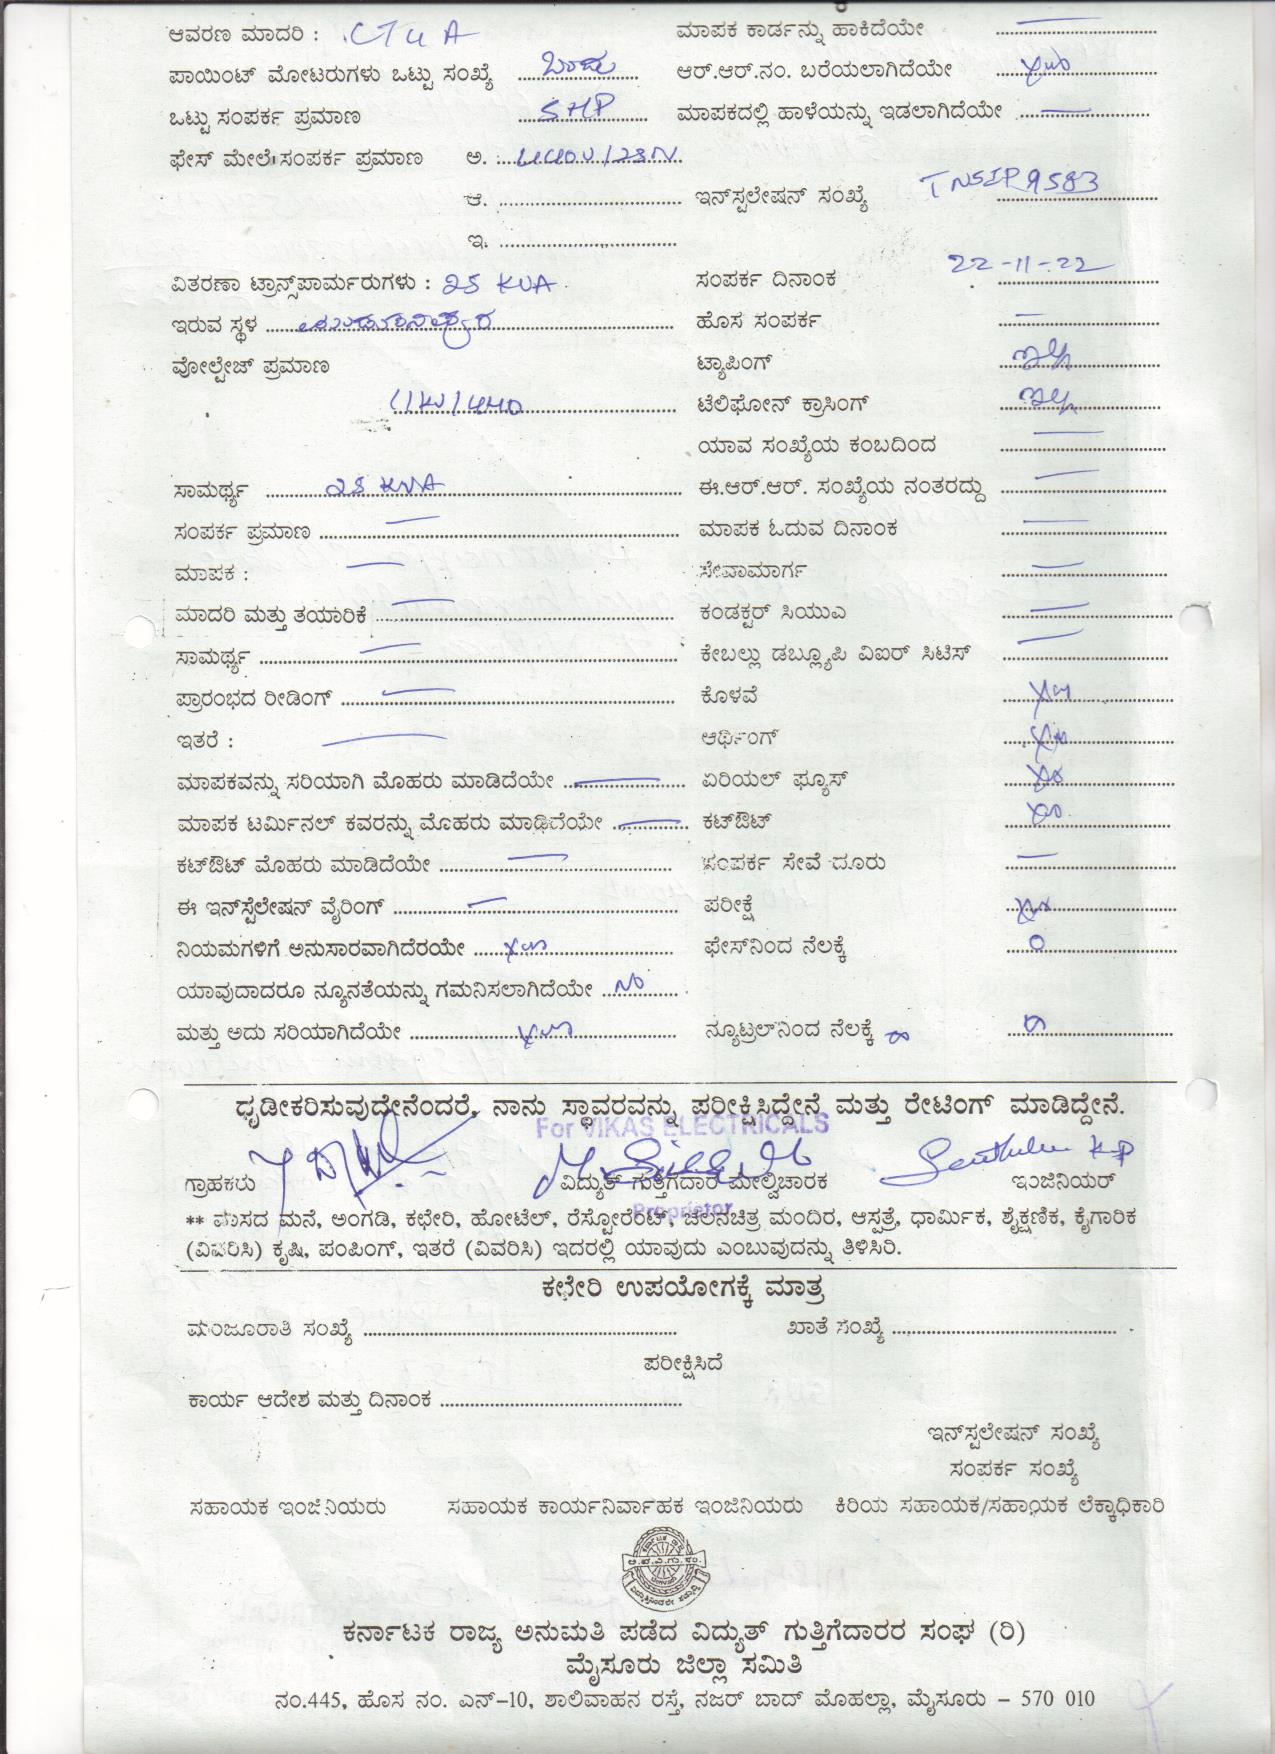 ಆವರಣ ಮಾದರಿ : ಮಾಪಕ ಕಾರ್ಡನ್ನು ಹಾಕಿದೆಯೇ
ಪಾಯಿಂಟ್ ಮೋಟರುಗಳು ಒಟ್ಟು ಸಂಖ್ಯೆ ಆರ್.ಆರ್.ನಂ. ಬರೆಯಲಾಗಿದೆಯೇ
ಒಟ್ಟು ಸಂಪರ್ಕ ಪ್ರಮಾಣ 5HP ಮಾಪಕದಲ್ಲಿ ಹಾಳೆಯನ್ನು ಇಡಲಾಗಿದೆಯೇ
ಫೇಸ್ ಮೇಲೆ ಸಂಪರ್ಕ ಪ್ರಮಾಣ ಅ.
ಆ. ಇನ್‌ಸ್ಟಲೇಷನ್ ಸಂಖ್ಯೆ TNSIP9583
ಇ.
ವಿತರಣಾ ಟ್ರಾನ್ಸ್‌ಪಾರ್ಮರುಗಳು : 25 KVA ಸಂಪರ್ಕ ದಿನಾಂಕ 22-11-22
ಇರುವ ಸ್ಥಳ ಹೊಸ ಸಂಪರ್ಕ
ವೋಲ್ಟೇಜ್ ಪ್ರಮಾಣ ಟ್ಯಾಪಿಂಗ್ ಇಲ್ಲ
11KV/440 ಟೆಲಿಫೋನ್ ಕ್ರಾಸಿಂಗ್ ಇಲ್ಲ
ಯಾವ ಸಂಖ್ಯೆಯ ಕಂಬದಿಂದ
ಸಾಮರ್ಥ್ಯ 25 KVA ಈ.ಆರ್.ಆರ್. ಸಂಖ್ಯೆಯ ನಂತರದ್ದು
ಸಂಪರ್ಕ ಪ್ರಮಾಣ ಮಾಪಕ ಓದುವ ದಿನಾಂಕ
ಮಾಪಕ : ಸೇವಾಮಾರ್ಗ
ಮಾದರಿ ಮತ್ತು ತಯಾರಿಕೆ ಕಂಡಕ್ಟರ್ ಸಿಯುಎ
ಸಾಮರ್ಥ್ಯ ಕೇಬಲ್ಲು ಡಬ್ಲ್ಯೂಪಿ ವಿಐರ್ ಸಿಟಿಸ್
ಪ್ರಾರಂಭದ ರೀಡಿಂಗ್ ಕೊಳವೆ
ಇತರೆ : ಆರ್ಥಿಂಗ್
ಮಾಪಕವನ್ನು ಸರಿಯಾಗಿ ಮೊಹರು ಮಾಡಿದೆಯೇ ಏರಿಯಲ್ ಫ್ಯೂಸ್
ಮಾಪಕ ಟರ್ಮಿನಲ್ ಕವರನ್ನು ಮೊಹರು ಮಾಡಿದೆಯೇ ಕಟ್‌ಔಟ್
ಕಟ್‌ಔಟ್ ಮೊಹರು ಮಾಡಿದೆಯೇ ಸಂಪರ್ಕ ಸೇವೆ ದೂರು
ಈ ಇನ್‌ಸ್ಟೆಲೇಷನ್ ವೈರಿಂಗ್ ಪರೀಕ್ಷೆ
ನಿಯಮಗಳಿಗೆ ಅನುಸಾರವಾಗಿದೆರಯೇ yes ಫೇಸ್‌ನಿಂದ ನೆಲಕ್ಕೆ 0
ಯಾವುದಾದರೂ ನ್ಯೂನತೆಯನ್ನು ಗಮನಿಸಲಾಗಿದೆಯೇ No
ಮತ್ತು ಅದು ಸರಿಯಾಗಿದೆಯೇ yes ನ್ಯೂಟ್ರಲ್‌ನಿಂದ ನೆಲಕ್ಕೆ
ಧೃಡೀಕರಿಸುವುದೇನೆಂದರೆ, ನಾನು ಸ್ಥಾವರವನ್ನು ಪರೀಕ್ಷಿಸಿದ್ದೇನೆ ಮತ್ತು ರೇಟಿಂಗ್ ಮಾಡಿದ್ದೇನೆ.
For VIKAS ELECTRICALS
ಗ್ರಾಹಕರು ವಿದ್ಯುತ್ ಗುತ್ತಿಗೆದಾರ ಮೇಲ್ವಿಚಾರಕ ಇಂಜಿನಿಯರ್
Proprietor
** ವಾಸದ ಮನೆ, ಅಂಗಡಿ, ಕಛೇರಿ, ಹೋಟೆಲ್, ರೆಸ್ಟೋರೆಂಟ್, ಚಲನಚಿತ್ರ ಮಂದಿರ, ಆಸ್ಪತ್ರೆ, ಧಾರ್ಮಿಕ, ಶೈಕ್ಷಣಿಕ, ಕೈಗಾರಿಕ
(ವಿವರಿಸಿ) ಕೃಷಿ, ಪಂಪಿಂಗ್, ಇತರೆ (ವಿವರಿಸಿ) ಇದರಲ್ಲಿ ಯಾವುದು ಎಂಬುವುದನ್ನು ತಿಳಿಸಿರಿ.
ಕಛೇರಿ ಉಪಯೋಗಕ್ಕೆ ಮಾತ್ರ
ಮಂಜೂರಾತಿ ಸಂಖ್ಯೆ ಖಾತೆ ಸಂಖ್ಯೆ
ಪರೀಕ್ಷಿಸಿದೆ
ಕಾರ್ಯ ಆದೇಶ ಮತ್ತು ದಿನಾಂಕ
ಇನ್‌ಸ್ಟಲೇಷನ್ ಸಂಖ್ಯೆ
ಸಂಪರ್ಕ ಸಂಖ್ಯೆ
ಸಹಾಯಕ ಇಂಜಿನಿಯರು ಸಹಾಯಕ ಕಾರ್ಯನಿರ್ವಾಹಕ ಇಂಜಿನಿಯರು ಕಿರಿಯ ಸಹಾಯಕ/ಸಹಾಯಕ ಲೆಕ್ಕಾಧಿಕಾರಿ
ಕರ್ನಾಟಕ ರಾಜ್ಯ ಅನುಮತಿ ಪಡೆದ ವಿದ್ಯುತ್ ಗುತ್ತಿಗೆದಾರರ ಸಂಘ (ರಿ)
ಮೈಸೂರು ಜಿಲ್ಲಾ ಸಮಿತಿ
ನಂ.445, ಹೊಸ ನಂ. ಎನ್-10, ಶಾಲಿವಾಹನ ರಸ್ತೆ, ನಜರ್ ಬಾದ್ ಮೊಹಲ್ಲಾ, ಮೈಸೂರು – 570 010